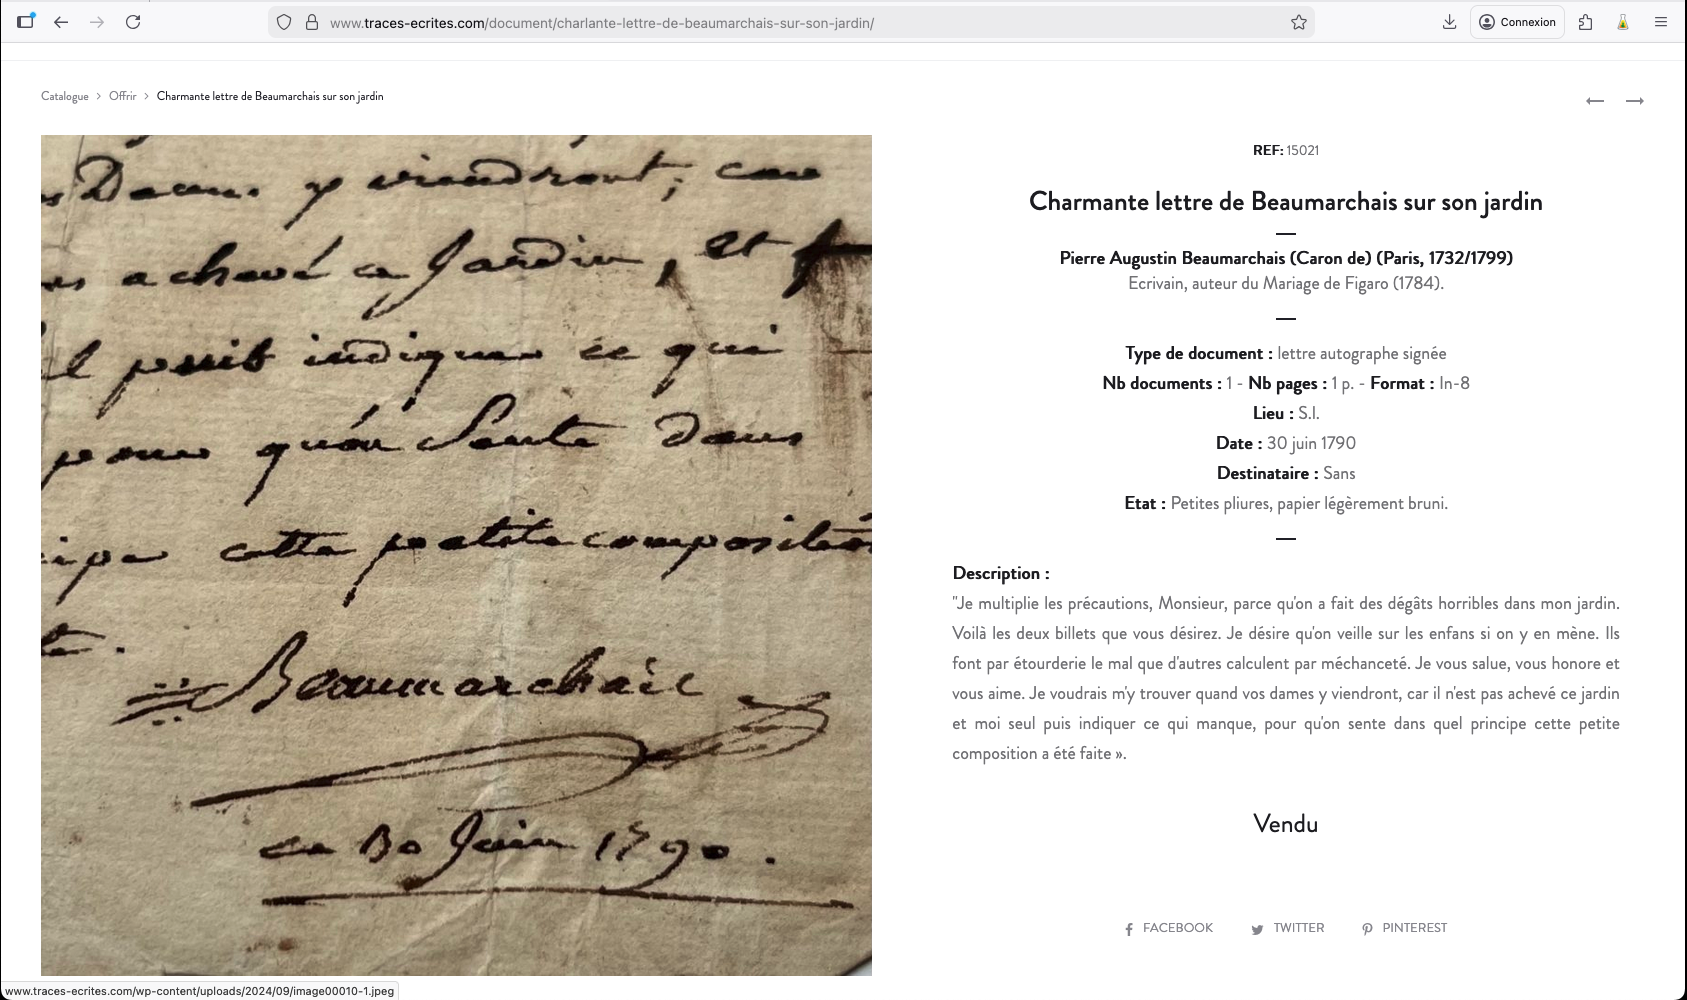 www.traces-ecrites.com/document/charlante-lettre-de-beaumarchais-sur-son-jardin/
Connexion
Catalogue > Offrir > Charmante lettre de Beaumarchais sur son jardin
Dames y viendront, car
achevé ce Jardin, et
il puis indiquer ce qui
pour qu'on Sente dans
cipe cette petite composition
te.
Beaumarchais
ce 30 Juin 1790.
REF: 15021
Charmante lettre de Beaumarchais sur son jardin
Pierre Augustin Beaumarchais (Caron de) (Paris, 1732/1799)
Ecrivain, auteur du Mariage de Figaro (1784).
Type de document : lettre autographe signée
Nb documents : 1 - Nb pages : 1 p. - Format : In-8
Lieu : S.l.
Date : 30 juin 1790
Destinataire : Sans
Etat : Petites pliures, papier légèrement bruni.
Description :
"Je multiplie les précautions, Monsieur, parce qu'on a fait des dégâts horribles dans mon jardin.
Voilà les deux billets que vous désirez. Je désire qu'on veille sur les enfans si on y en mène. Ils
font par étourderie le mal que d'autres calculent par méchanceté. Je vous salue, vous honore et
vous aime. Je voudrais m'y trouver quand vos dames y viendront, car il n'est pas achevé ce jardin
et moi seul puis indiquer ce qui manque, pour qu'on sente dans quel principe cette petite
composition a été faite ».
Vendu
FACEBOOK TWITTER PINTEREST
www.traces-ecrites.com/wp-content/uploads/2024/09/image00010-1.jpeg